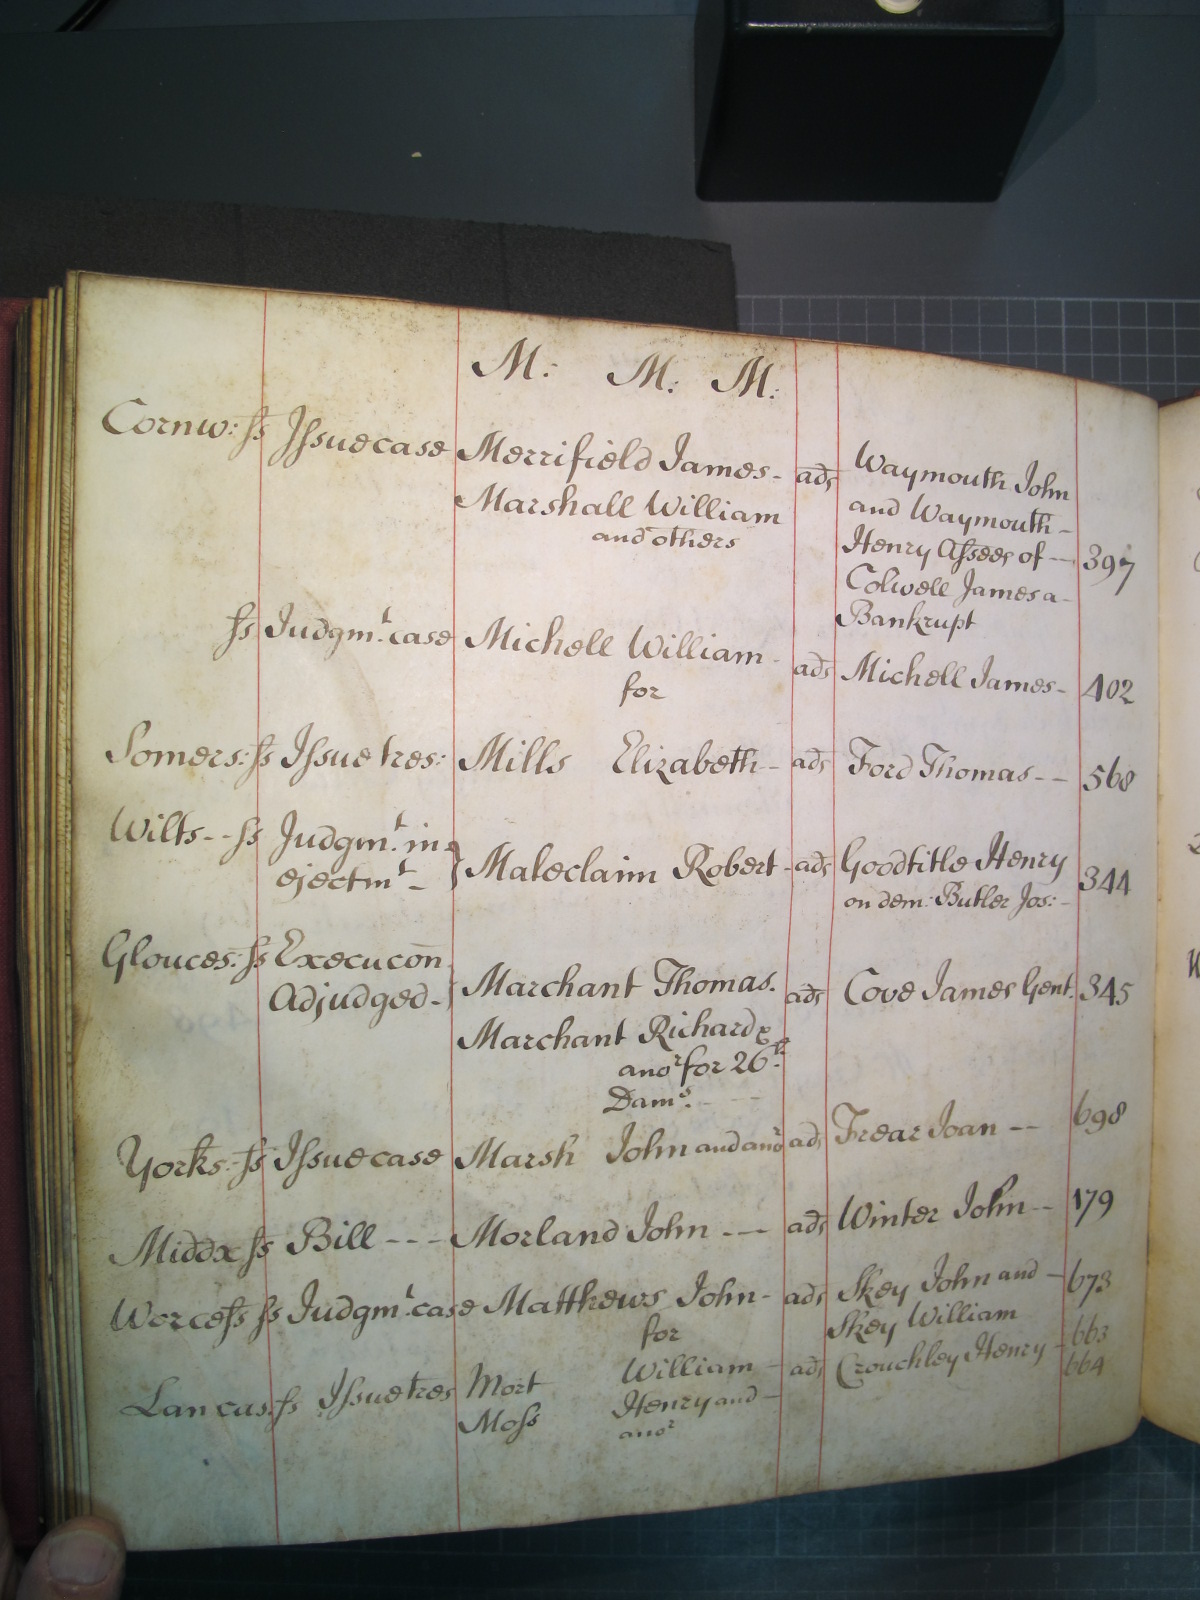 M: M: M:
Cornw: ss Issue case Merrifield James - ads Waymouth John
Marshall William and Waymouth -
and others Henry Assees of -- 397
Colwell James a -
Bankrupt
ss Judgmt. case Michell William - ads Michell James - 402
for
Somers: ss Issue tres: Mills Elizabeth - ads Ford Thomas -- 568
Wilts -- ss Judgmt. in Maleclaim Robert - ads Goodtitle Henry 344
ejectmt - on dem: Butler Jos: -
Glouces: ss Execucon Marchant Thomas. ads Cove James Gent. 345
Adjudged -
Marchant Richard &
anor for 26li.
Dams. - - -
Yorks: ss Issue case Marsh John and anor ads Frear Joan -- 698
Middx ss Bill --- Morland John --- ads Winter John -- 179
Worcess ss Judgmt. case Matthews John - ads Skey John and - 673
for Skey William
Lancas. ss Issue tres Mort William - ads Crouchley Henry - 663
Moss Henry and - 664
anor